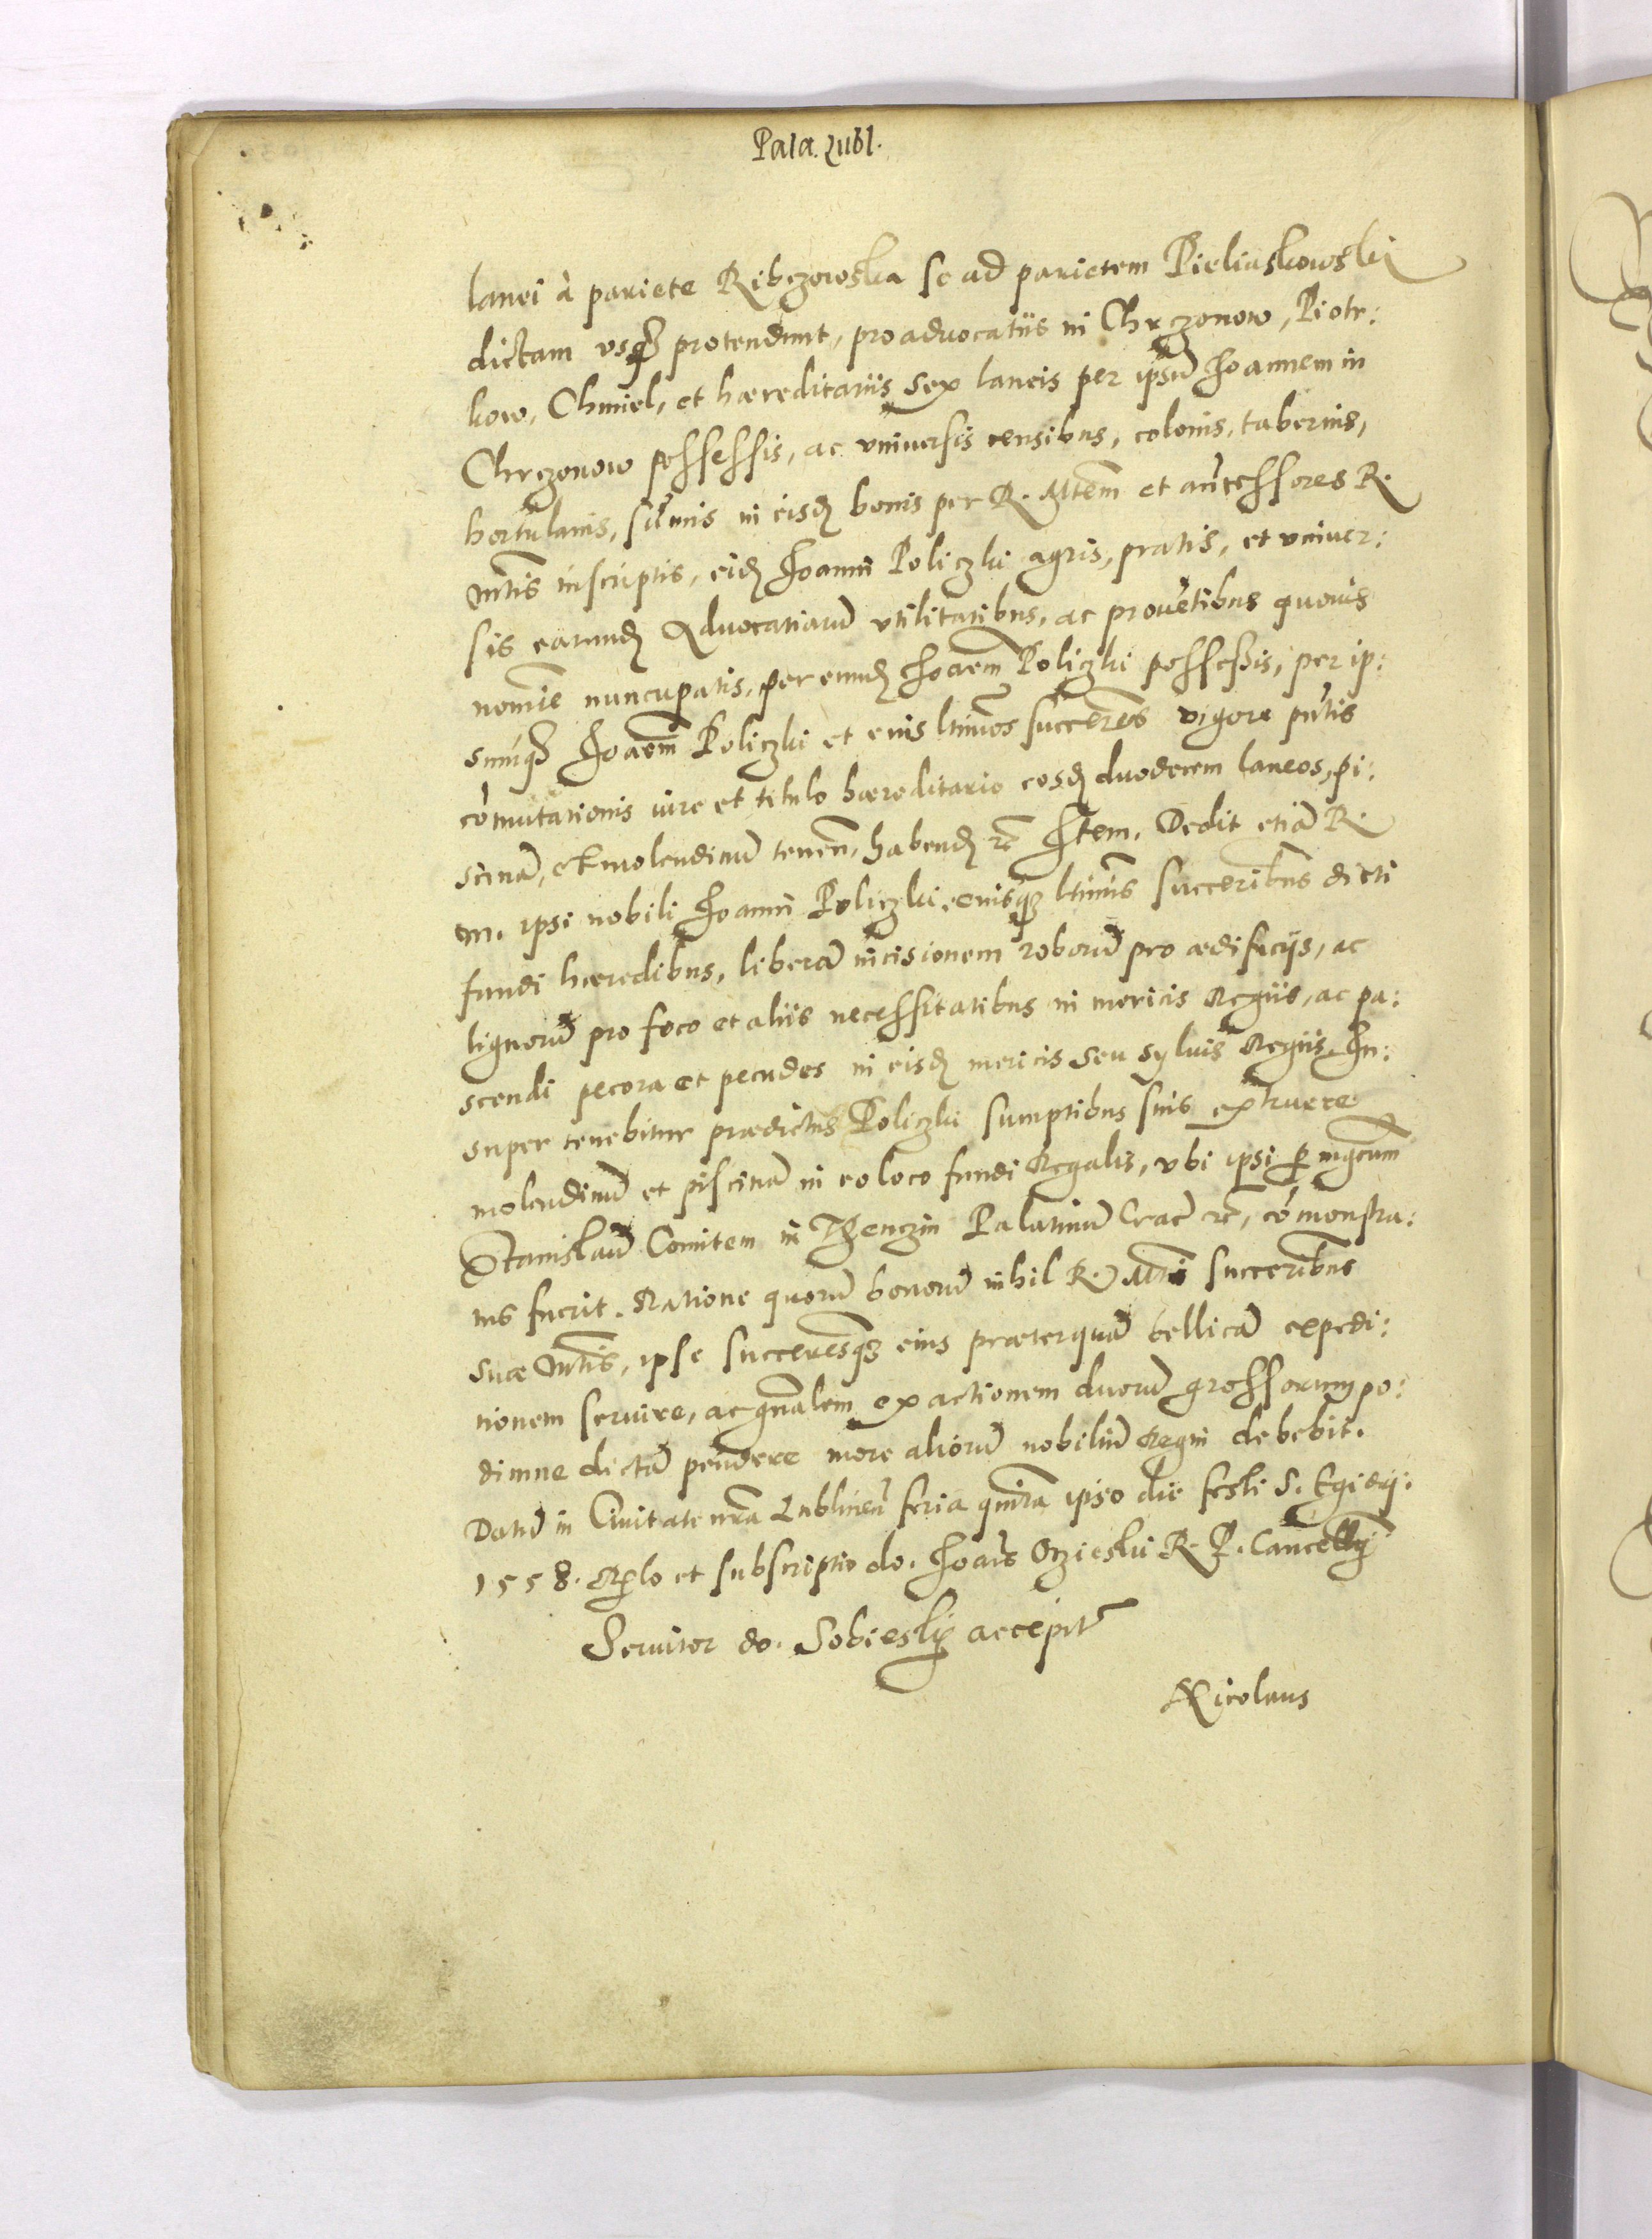 Pala. Lubl.
lanei à pariete Ribczowska se ad parietem Pieliaskowski
dictam vsq3 protendunt, pro aduocatiis in Chrczonow, Piotr:
kow, Chmiel, et hæreditariis sex laneis per ipsū Joannem in
Chrczonow possessis, ac vniuersis censibus, colonis, tabernis,
hortulanis, sūmis in eisd bonis per R. Mtem et antecessores R.
Mtis inscriptis, eid Joanni Policzki agris, pratis, et vniuer:
sis earund Aduocatiarū vtilitatibus, ac prouētibus quouis
nomīe nuncupatis, per eund Joaem Policzki possessis, per ip:
sumq3 Joaem Policzki et eius ltimos succeres vigore pntis
cōmutationis iure et titulo hæreditario eosd duodecem laneos, pi:
scinā, et molendinū tenen, habend rc Item. Dedit etiā R.
M. ipsi nobili Joanni Policzki, eiusq3 ltimis succeribus dicti
fundi hæredibus, liberā incisionem roborū pro ædificijs, ac
lignorū pro foco et aliis necessitatibus in mericis Regiis, ac pa:
scendi pecora et pecudes in eisd mericis seu syluis Regiis. In:
super tenebitur prædictus Policzki sumptibus suis extruere
molendinū et piscinā in eo loco fundi Regalis, vbi ipsi p mgcum
Stanislaū Comitem in Thenczin Palatinū Crac rc, cōmonstra:
tus fuerit. Ratione quorū bonorū nihil R. Mti succeribus
suæ Mtis, ipse succeresq3 eius præterquā bellicā expedi:
tionem seruire, ac gnalem exactionem duorū grossorum po:
dimne dictā pendere more aliorū nobiliū Regni debebit.
Datū in Ciuitate nra Lublinen feria quinta ipso die festi S. Egidij.
1558. Rlo et subscriptio do. Joais Oczieski R. P. Cancellrij
Seruitor do. Sobieskj accepit
Nicolaus